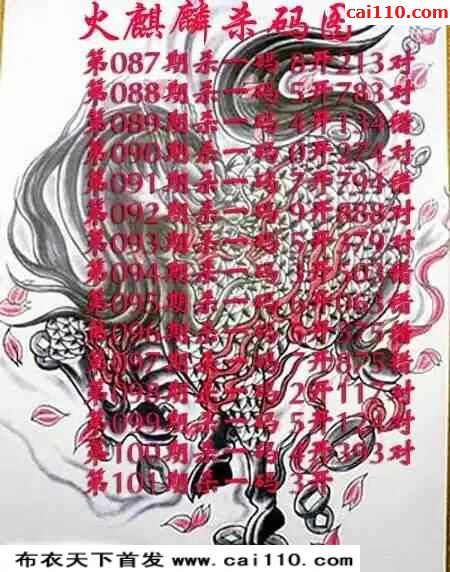 cai110.com
火麒麟杀码图
第087期杀一码8开213对
第088期杀一码5开783对
第089期杀一码4开134错
第090期杀一码0开 对
第091期杀一码7开794错
第092期杀一码9开888对
第093期杀一码5开 对
第094期杀一码3开503错
第095期杀一码6开063错
第096期杀一码 开575错
第097期杀一码7开875错
第098期杀一码2开 对
第099期杀一码5开 对
第100期杀一码4开393对
第101期杀一码3开
布衣天下首发 www.cai110.com